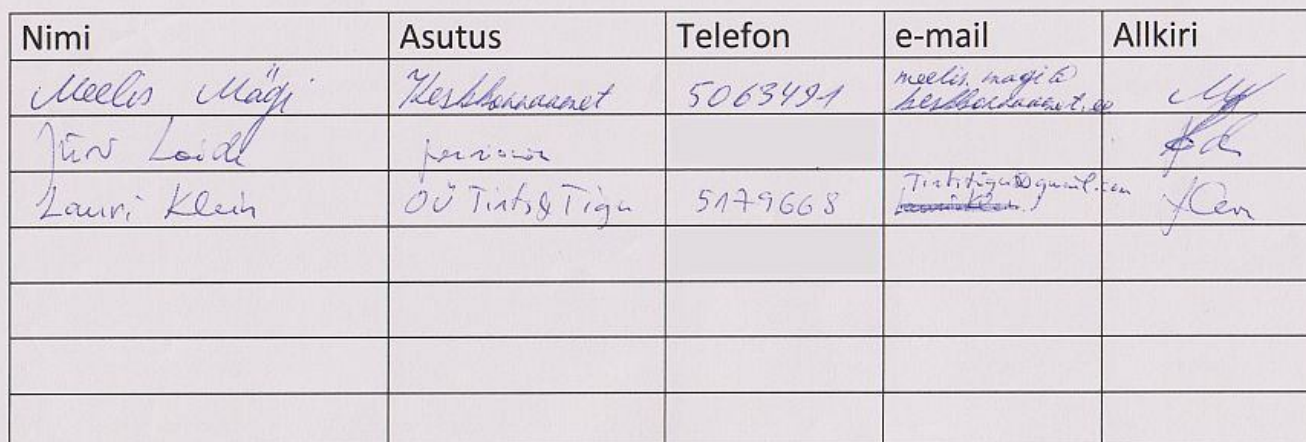 Nimi Asutus Telefon e-mail Allkiri
Meelis Mägi Keskkonnaamet 5063491 meelis.magi@
keskkonnaamet.ee
Jüri Laide pensionär
Lauri Klein OÜ Tints&Tigu 5179668 Tintstigu@gmail.com